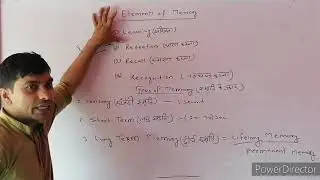 Element of Memory
Learning (सीखना)
(ii) Retention (धारण करना)
(iii) Recall
(iv) Recognition (पहचान करना)
Types of Memory (स्मृति के प्रकार)
1. Sensory (संवेदी स्मृति) - 1 Second
2. Short Term (लघु स्मृति)
3. Long Term Memory (दीर्घ स्मृति) = Lifelong Memory
Permanent Memory
PowerDirector